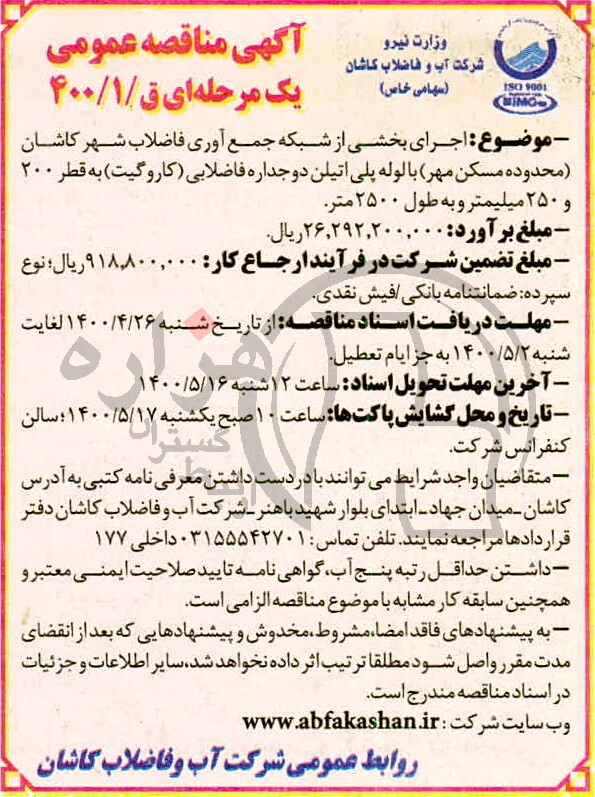 وزارت نیرو
شرکت آب و فاضلاب کاشان
(سهامی خاص)
ISO 9001
IMQ
آگهی مناقصه عمومی
یک مرحله‌ای ق/۴۰۰/۱
–موضوع: اجرای بخشی از شبکه جمع آوری فاضلاب شهر کاشان
(محدوده مسکن مهر) با لوله پلی اتیلن دوجداره فاضلابی (کاروگیت) به قطر ۲۰۰
و ۲۵۰ میلیمتر و به طول ۲۵۰۰ متر.
–مبلغ برآورد: ۲۶,۲۹۲,۲۰۰,۰۰۰ ریال.
–مبلغ تضمین شرکت در فرآیند ارجاع کار: ۹۱۸,۸۰۰,۰۰۰ ریال؛ نوع
سپرده: ضمانتنامه بانکی/فیش نقدی.
–مهلت دریافت اسناد مناقصه: از تاریخ شنبه ۱۴۰۰/۴/۲۶ لغایت
شنبه ۱۴۰۰/۵/۲ به جز ایام تعطیل.
–آخرین مهلت تحویل اسناد: ساعت ۱۲ شنبه ۱۴۰۰/۵/۱۶
–تاریخ و محل گشایش پاکت‌ها: ساعت ۱۰ صبح یکشنبه ۱۴۰۰/۵/۱۷؛ سالن
کنفرانس شرکت.
–متقاضیان واجد شرایط می توانند با در دست داشتن معرفی نامه کتبی به آدرس
کاشان–میدان جهاد–ابتدای بلوار شهید باهنر–شرکت آب و فاضلاب کاشان دفتر
قراردادها مراجعه نمایند. تلفن تماس: ۰۳۱۵۵۵۴۲۷۰۱ داخلی ۱۷۷
–داشتن حداقل رتبه پنج آب، گواهی نامه تایید صلاحیت ایمنی معتبر و
همچنین سابقه کار مشابه با موضوع مناقصه الزامی است.
–به پیشنهادهای فاقد امضا، مشروط، مخدوش و پیشنهادهایی که بعد از انقضای
مدت مقرر واصل شود مطلقا ترتیب اثر داده نخواهد شد، سایر اطلاعات و جزئیات
در اسناد مناقصه مندرج است.
وب سایت شرکت: www.abfakashan.ir
روابط عمومی شرکت آب و فاضلاب کاشان
هزاره
گستران